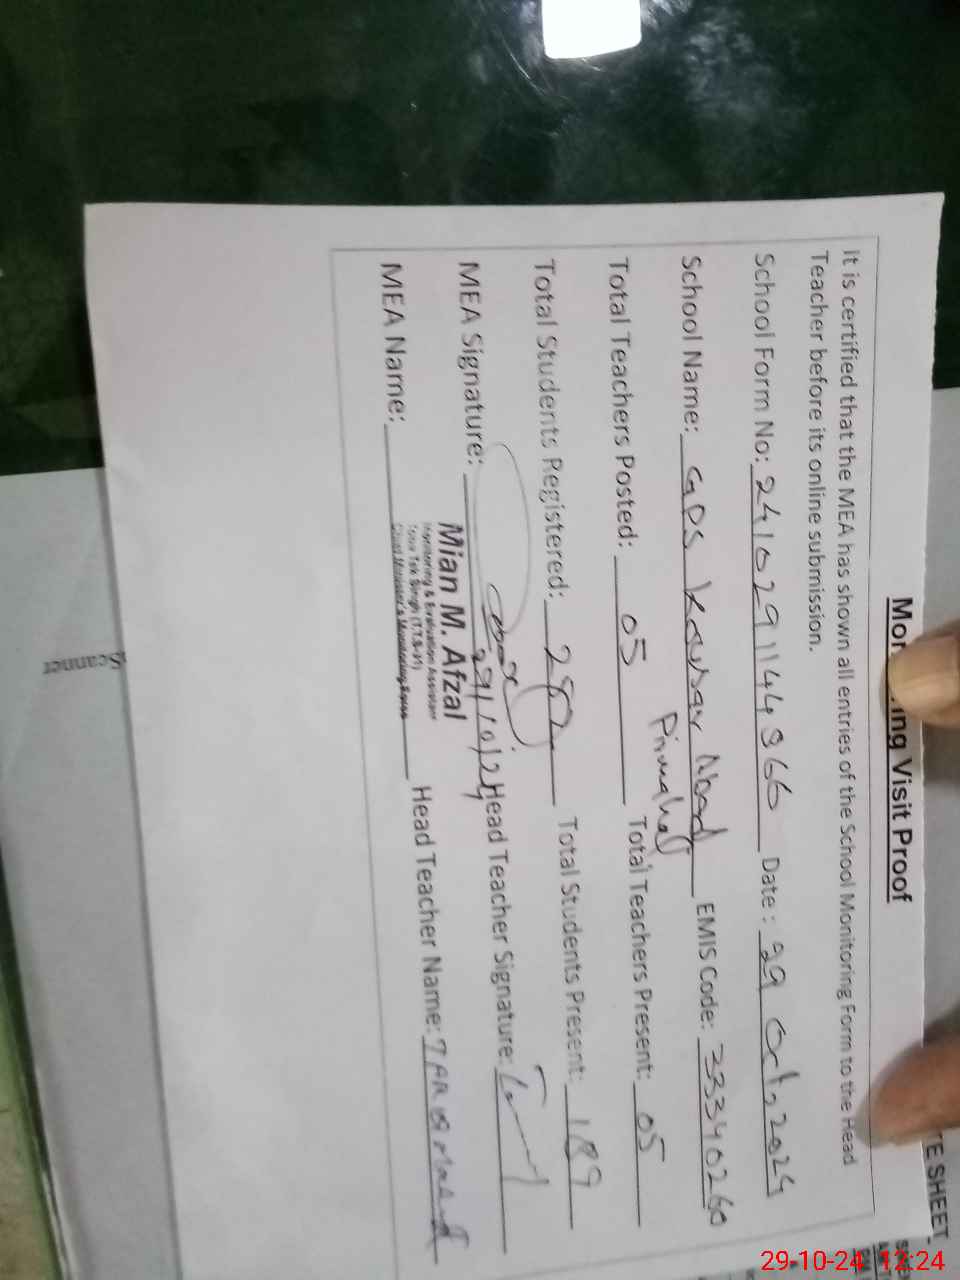 Mon ing Visit Proof
It is certified that the MEA has shown all entries of the School Monitoring Form to the Head
Teacher before its online submission.
School Form No: 2410291144966 Date: 29 Oct, 2024
School Name: GPS Kausar Abad EMIS Code: 33340260
Total Teachers Posted: 05 Total Teachers Present: 05
Total Students Registered: 282 Total Students Present: 189
MEA Signature: 29/10/24 Head Teacher Signature:
Mian M. Afzal
Monitoring & Evaluation Assistant
Toba Tek Singh
Chief Minister's Monitoring Force
MEA Name: Head Teacher Name:
TE SHEET
Scanner
29-10-24 12:24